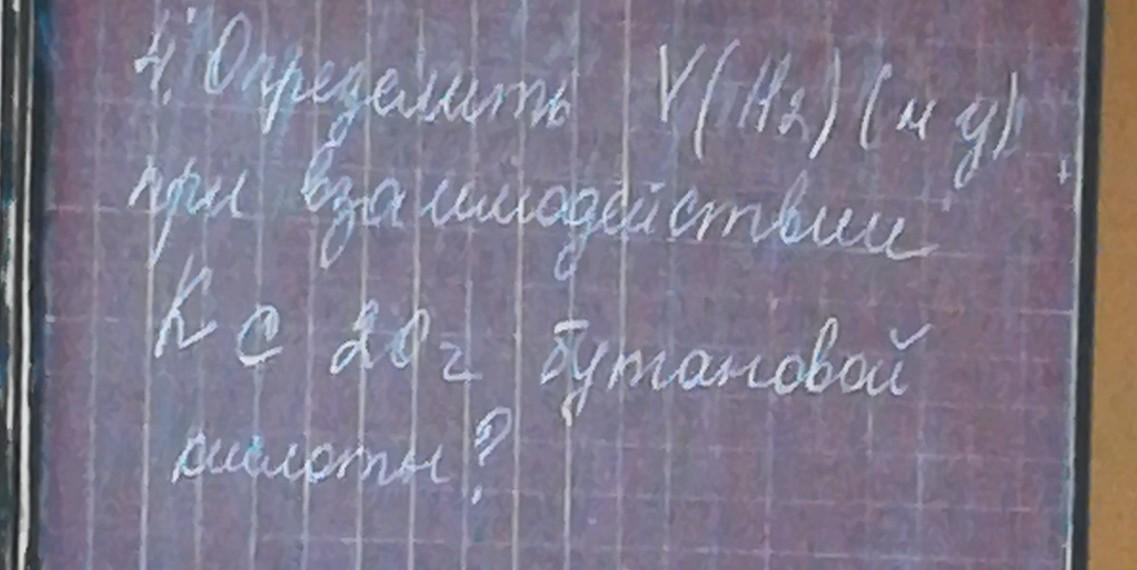 4. Определить V(H2) (н у)
при взаимодействии
K с 20 г бутановой
кислоты?